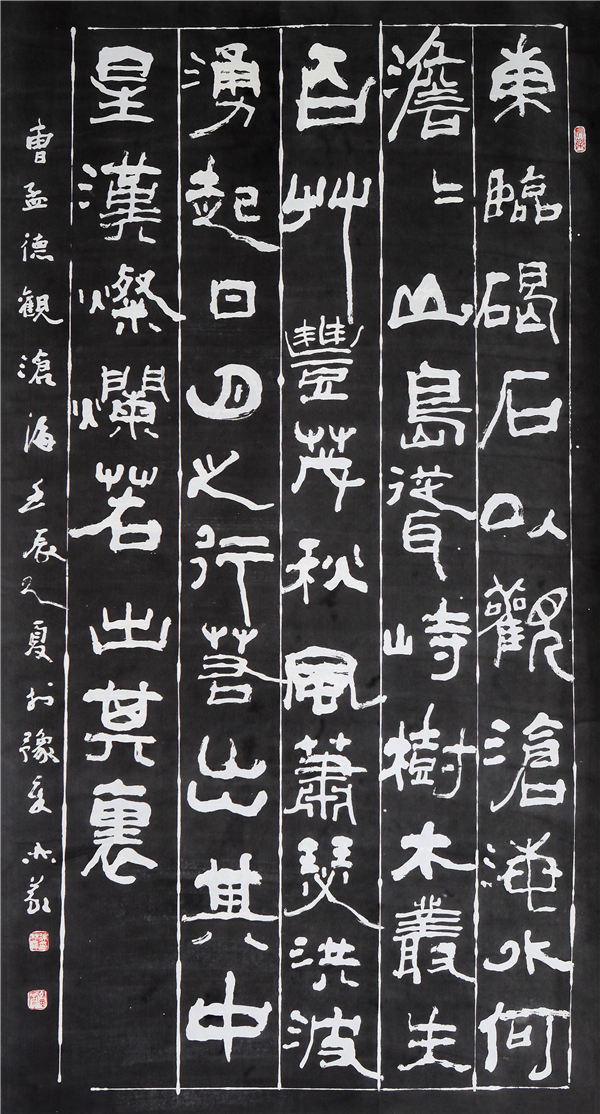 東臨碣石以觀滄海水何
澹〻山島聳峙樹木叢生
百艸豐茂秋風蕭瑟洪波
湧起日月之行若出其中
星漢燦爛若出其裏
曹孟德觀滄海壬辰之夏於豫